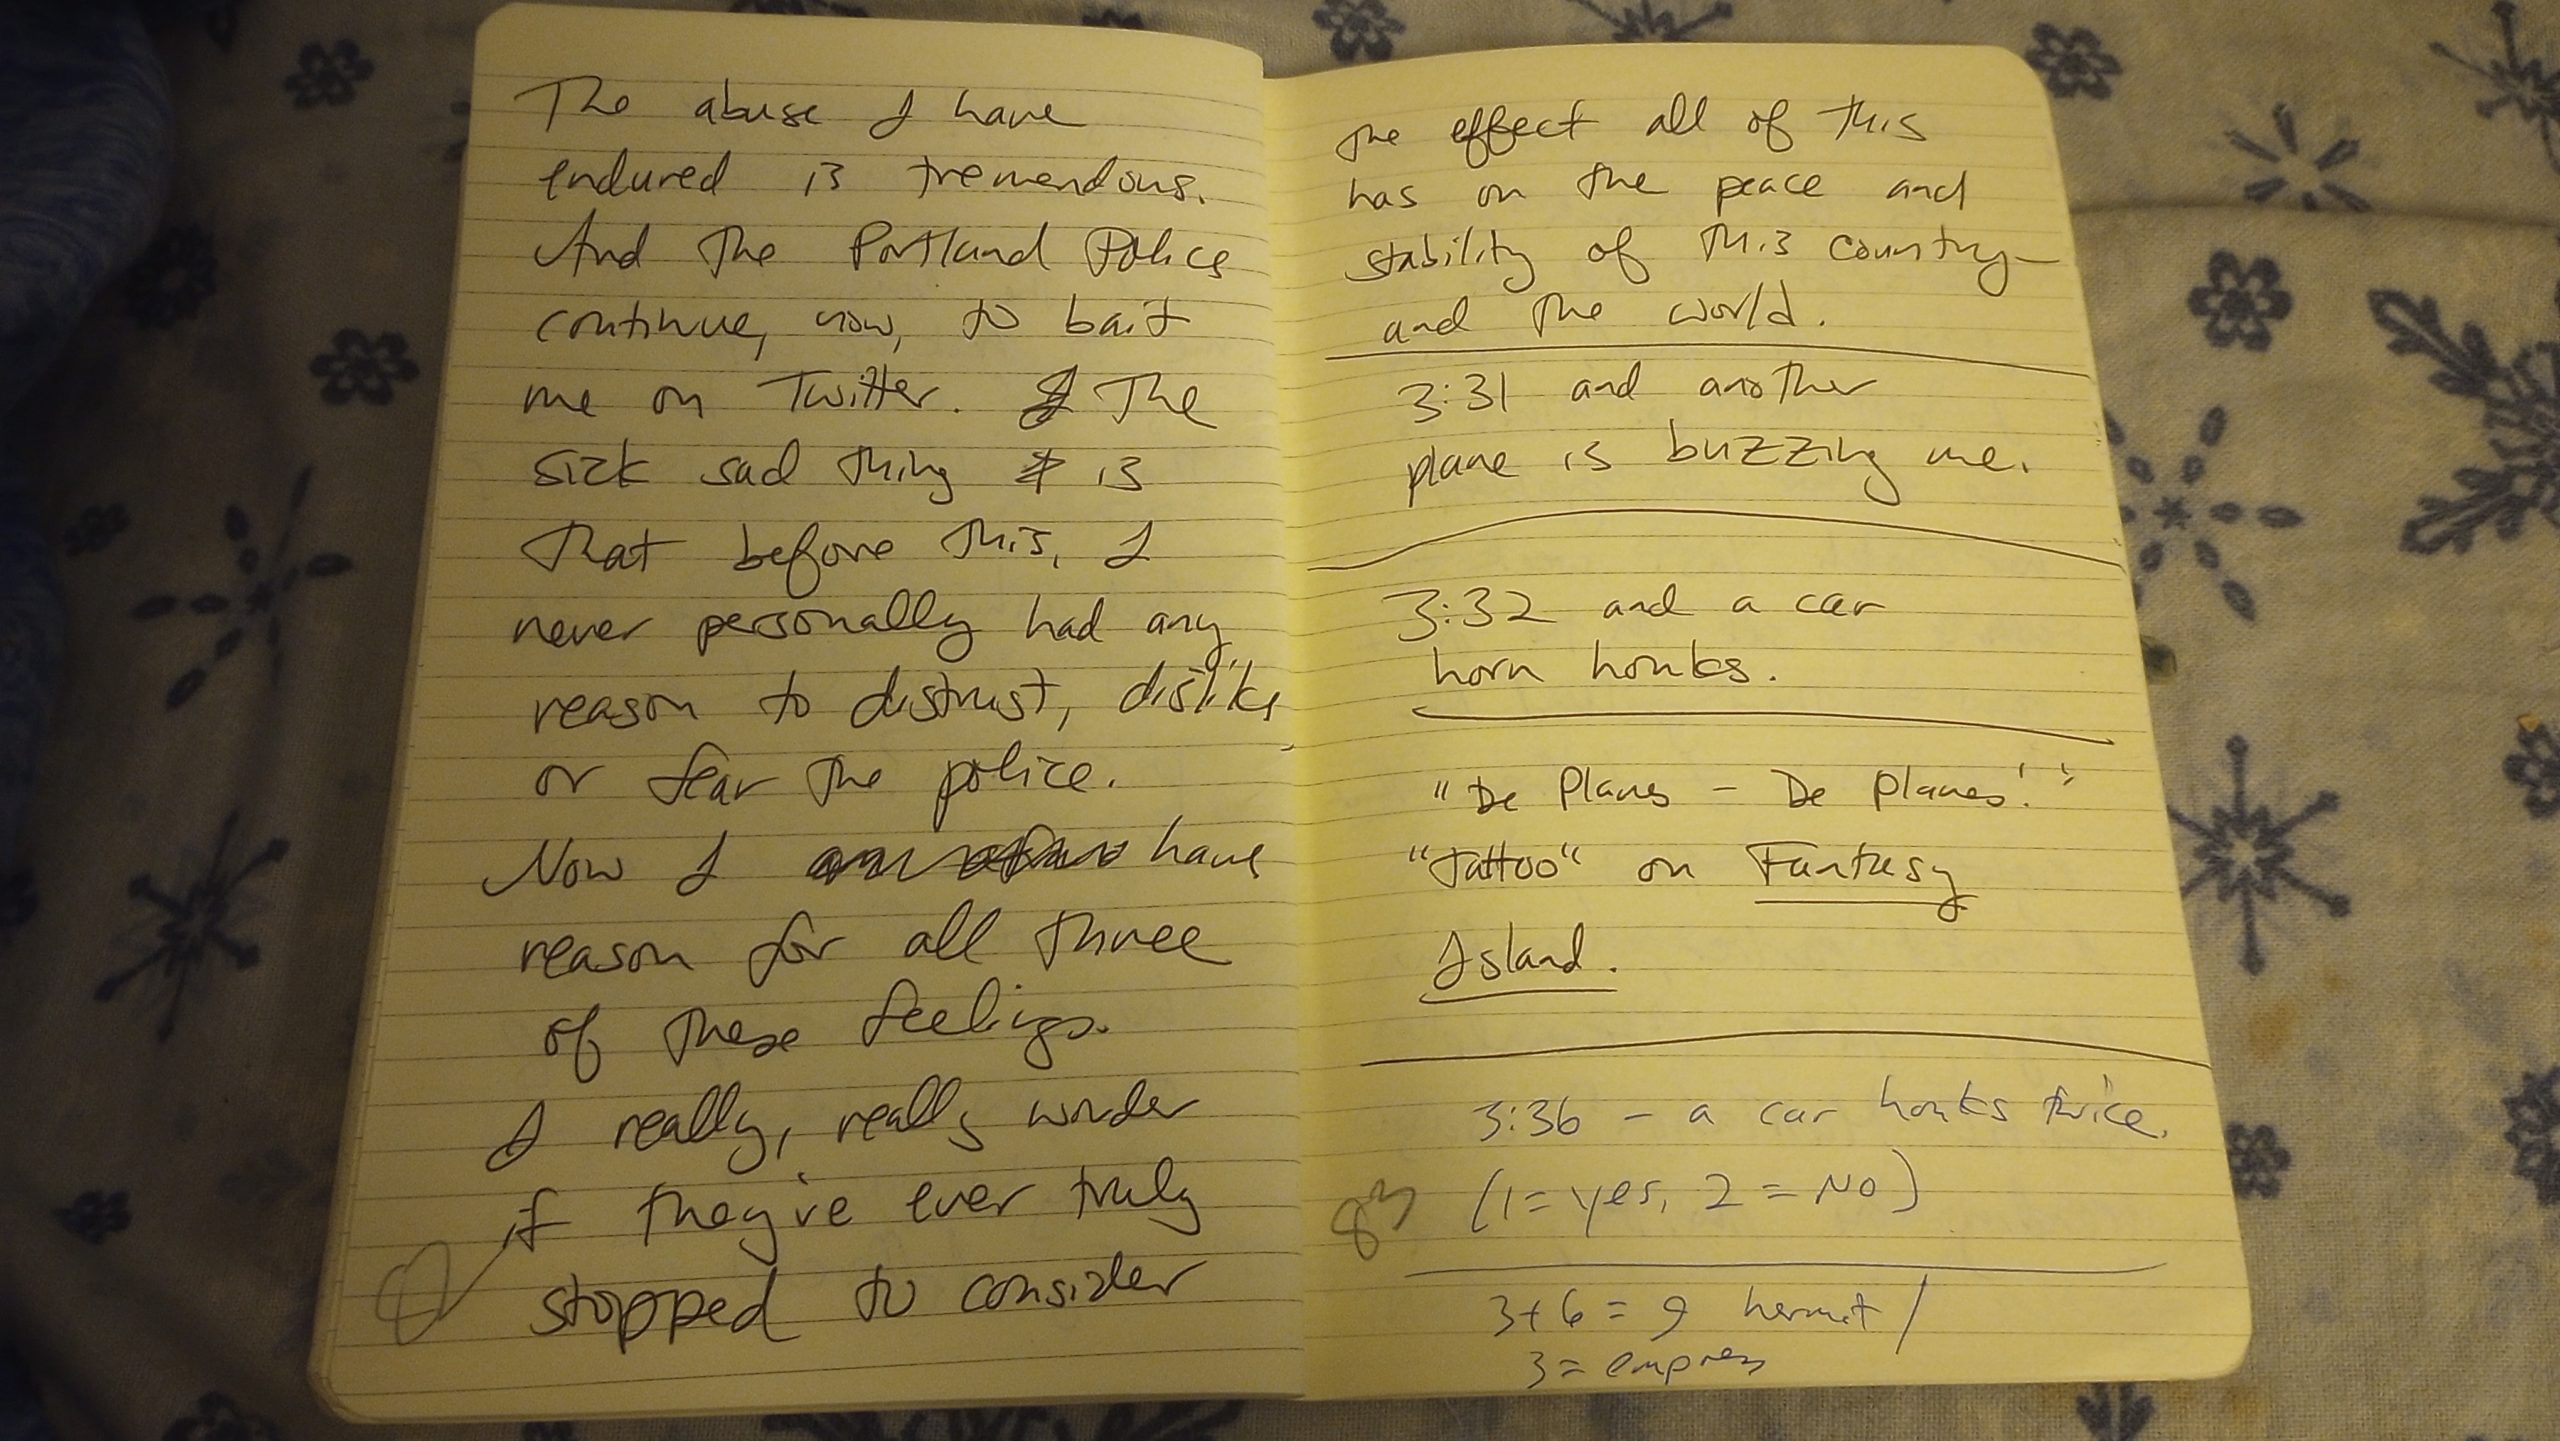 The abuse I have
endured is tremendous.
And the Portland Police
continue, now, to bait
me on Twitter. The
sick sad thing is
that before this, I
never personally had any
reason to distrust, dislike
or fear the police.
Now I have
reason for all three
of these feelings.
I really, really wonder
if they've ever truly
stopped to consider
the effect all of this
has on the peace and
stability of this country—
and the world.
3:31 and another
plane is buzzing me.
3:32 and a car
horn honks.
"De Planes - De Planes!"
"Tattoo" on Fantasy
Island.
3:36 - a car honks twice.
(1 = yes, 2 = NO)
83
3+6 = 9 hermit /
3 = empress